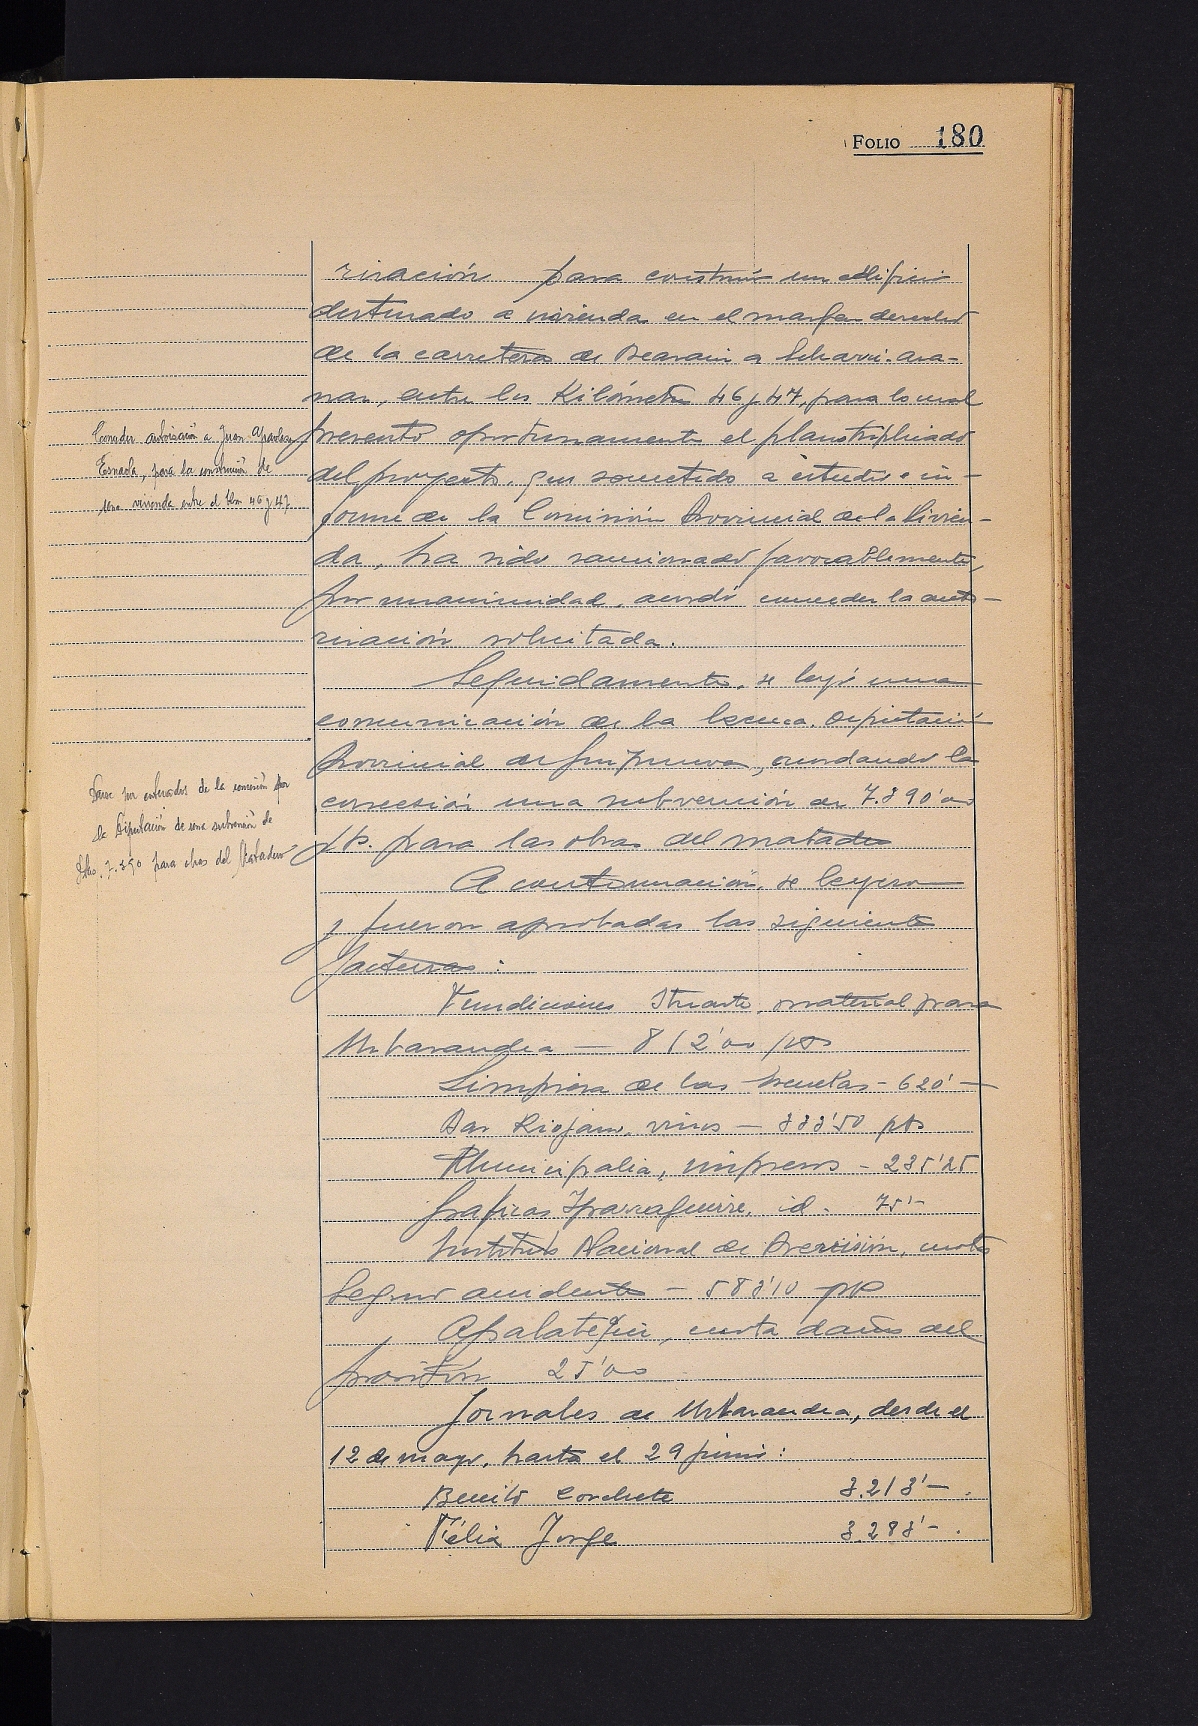 FOLIO 180
rización para construir un edificio
destinado a vivienda en el margen derecho
de la carretera de Beasain a Echarri-Ara-
naz, entre los Kilómetros 46 y 47, para lo cual
presentó oportunamente el plano triplicado
del proyecto, que sometido a estudio e in-
forme de la Comisión Provincial de la Vivien-
da, ha sido sancionado favorablemente,
por unanimidad, acordó conceder la auto-
rización solicitada.
Seguidamente, se leyó una
comunicación de la Excma. Diputación
Provincial de Guipuzcoa, acordando la
concesión una subvención de 7.390'00
pts. para las obras del matadero
A continuación, se leyeron
y fueron aprobadas las siguientes
facturas:
Fundiciones Ituarte, material para
Urbarandea — 812'00 pts
Limpieza de las Escuelas - 620'—
Bar Riojano, vinos — 333'50 pts
Municipalia, impresos - 235'25
Graficas Yparraguirre, id. 75'-
Instituto Nacional de Previsión, cuota
Seguro accidentes — 583'10 pts
Apalategui, cuota daños del
25'00
Jornales de Urbarandea, desde el
12 de mayo, hasta el 29 junio:
Benito Corchete 3.213'— .
Félix Jorge 3.283'- .
Conceder autorización a Juan
para la construcción de
una vivienda entre el Km 46 y 47.
Darse por enterados de la concesión por
la Diputación de una subvención de
Ptas. 7.390 para obras del Matadero